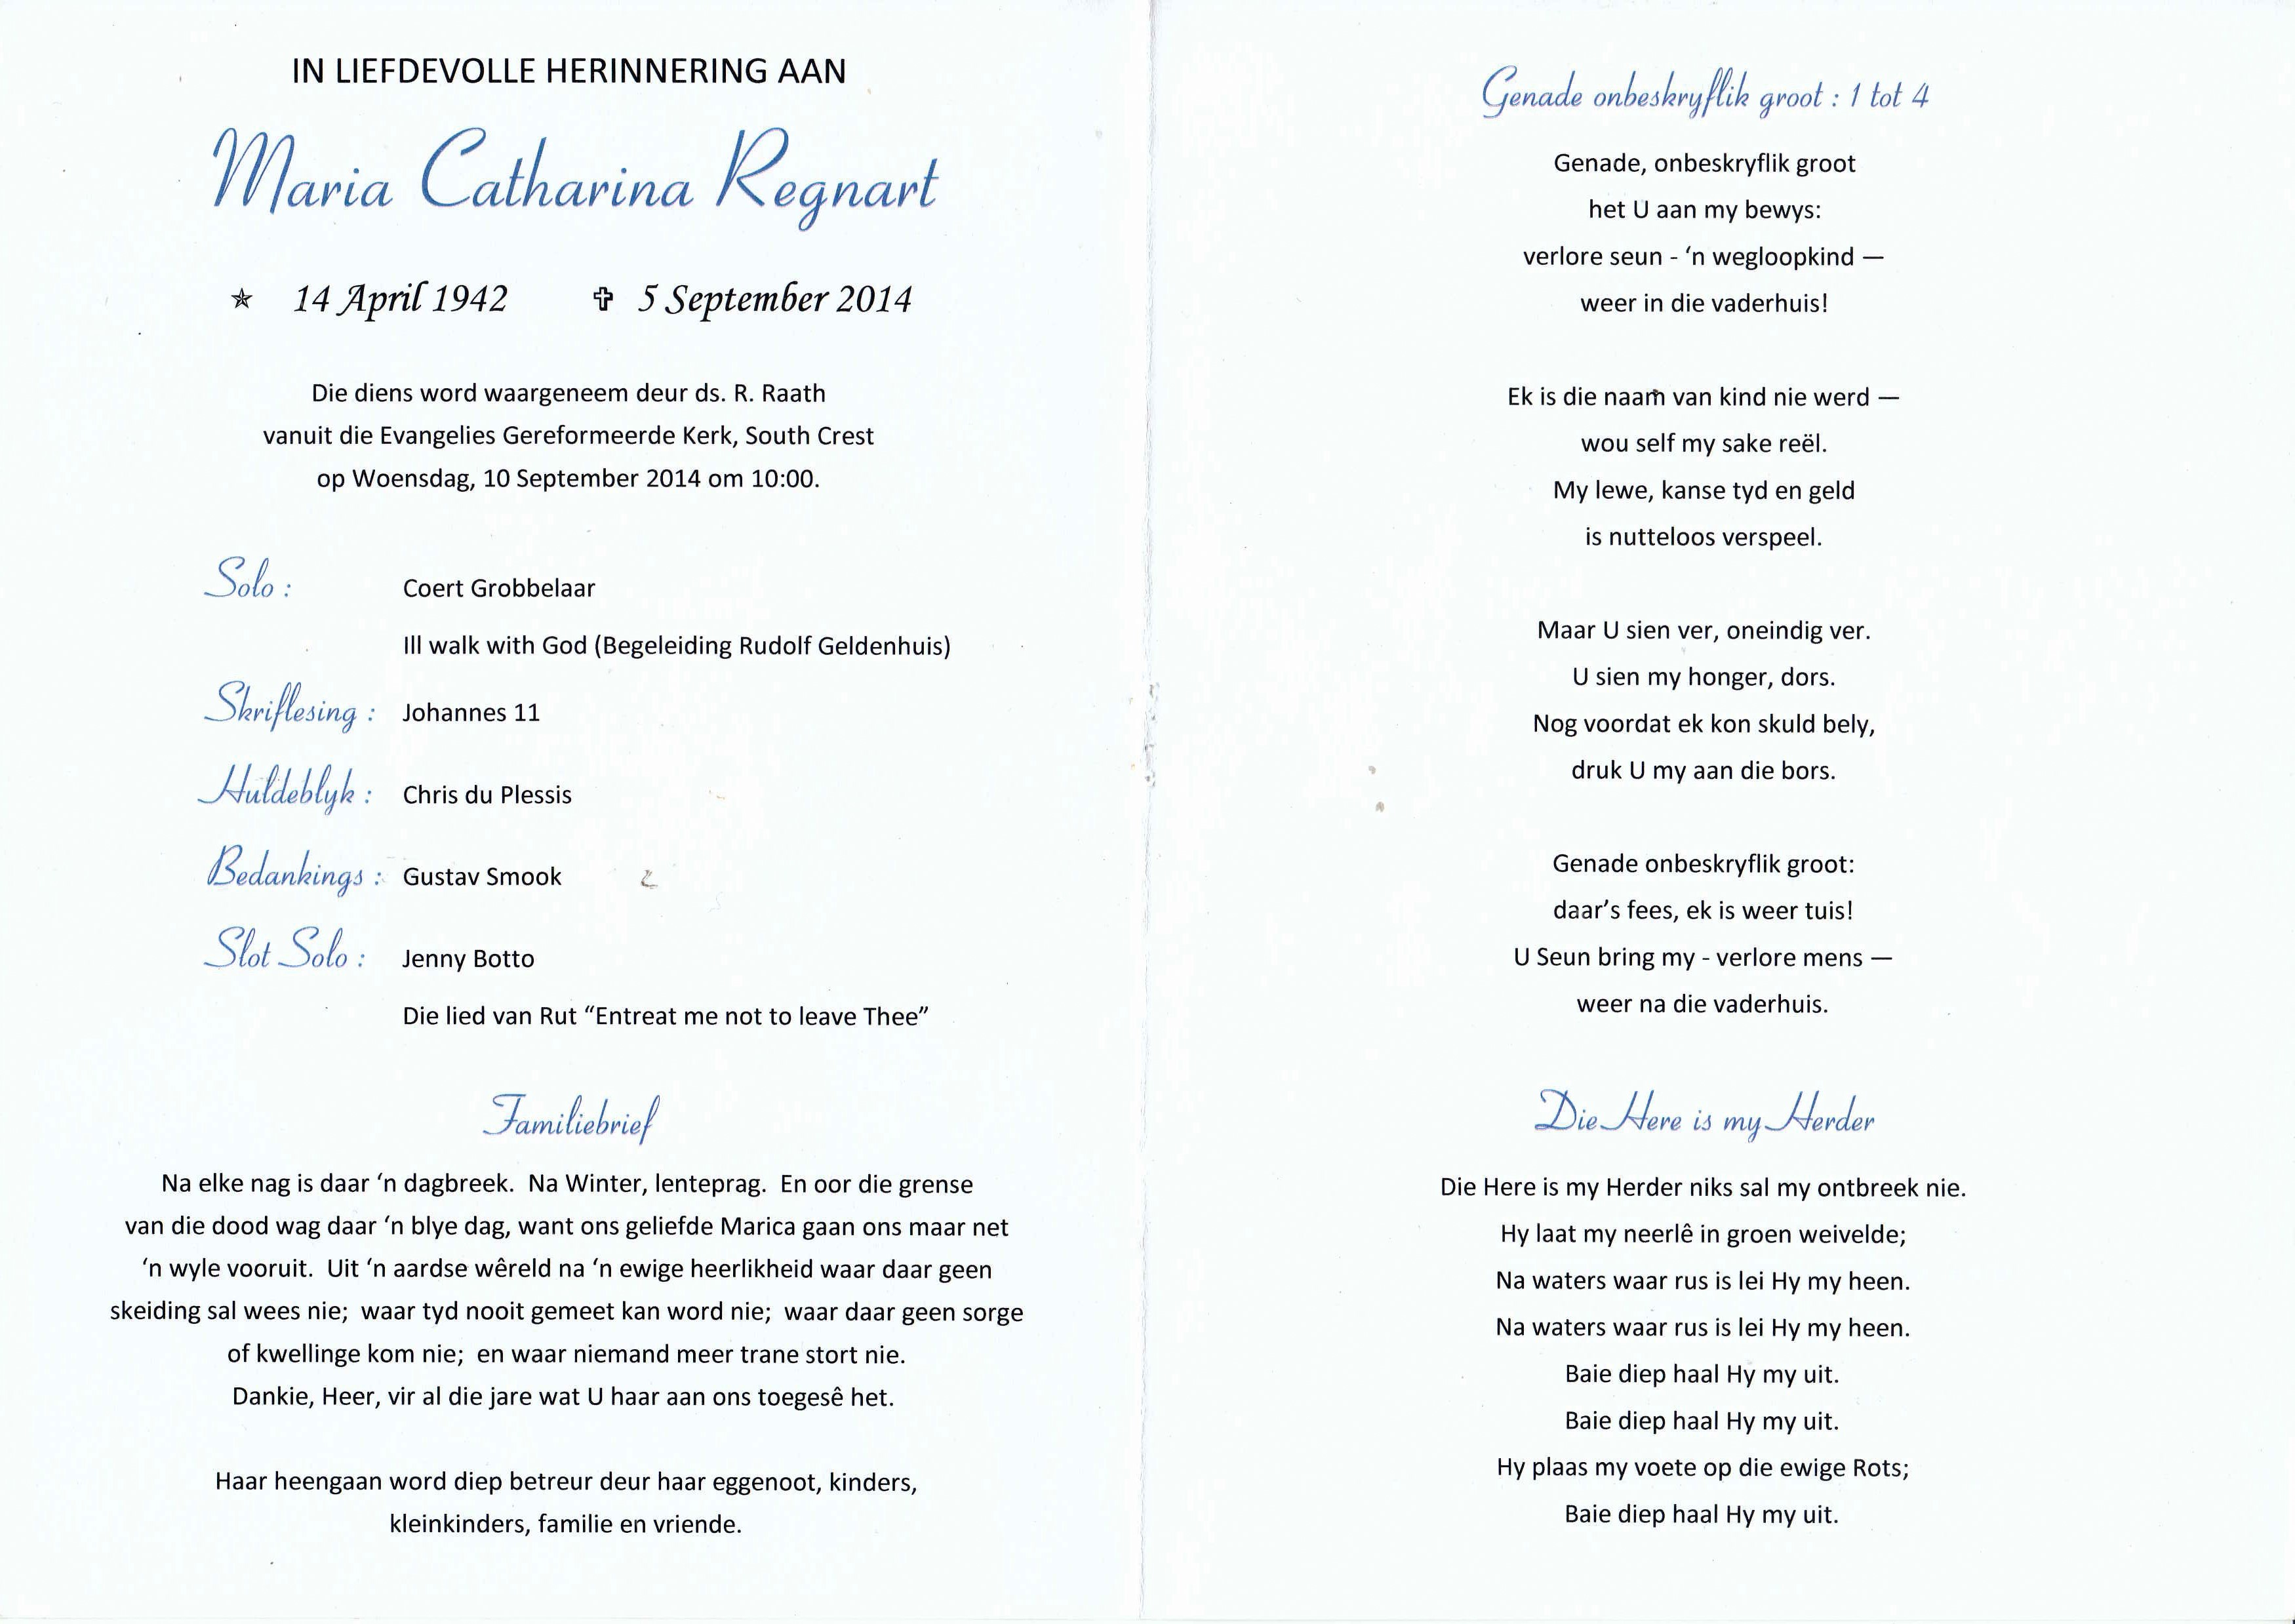 IN LIEFDEVOLLE HERINNERING AAN
Maria Catharina Regnart
✯ 14 April 1942 ✞ 5 September 2014
Die diens word waargeneem deur ds. R. Raath
vanuit die Evangelies Gereformeerde Kerk, South Crest
op Woensdag, 10 September 2014 om 10:00.
Solo : Coert Grobbelaar
Ill walk with God (Begeleiding Rudolf Geldenhuis)
Skriflesing : Johannes 11
Huldeblyk : Chris du Plessis
Bedankings : Gustav Smook
Slot Solo : Jenny Botto
Die lied van Rut “Entreat me not to leave Thee”
Familiebrief
Na elke nag is daar ‘n dagbreek. Na Winter, lenteprag. En oor die grense
van die dood wag daar ‘n blye dag, want ons geliefde Marica gaan ons maar net
‘n wyle vooruit. Uit ‘n aardse wêreld na ‘n ewige heerlikheid waar daar geen
skeiding sal wees nie; waar tyd nooit gemeet kan word nie; waar daar geen sorge
of kwellinge kom nie; en waar niemand meer trane stort nie.
Dankie, Heer, vir al die jare wat U haar aan ons toegesê het.
Haar heengaan word diep betreur deur haar eggenoot, kinders,
kleinkinders, familie en vriende.
Genade onbeskryflik groot : 1 tot 4
Genade, onbeskryflik groot
het U aan my bewys:
verlore seun - ‘n wegloopkind —
weer in die vaderhuis!
Ek is die naam van kind nie werd —
wou self my sake reël.
My lewe, kanse tyd en geld
is nutteloos verspeel.
Maar U sien ver, oneindig ver.
U sien my honger, dors.
Nog voordat ek kon skuld bely,
druk U my aan die bors.
Genade onbeskryflik groot:
daar’s fees, ek is weer tuis!
U Seun bring my - verlore mens —
weer na die vaderhuis.
Die Here is my Herder
Die Here is my Herder niks sal my ontbreek nie.
Hy laat my neerlê in groen weivelde;
Na waters waar rus is lei Hy my heen.
Na waters waar rus is lei Hy my heen.
Baie diep haal Hy my uit.
Baie diep haal Hy my uit.
Hy plaas my voete op die ewige Rots;
Baie diep haal Hy my uit.